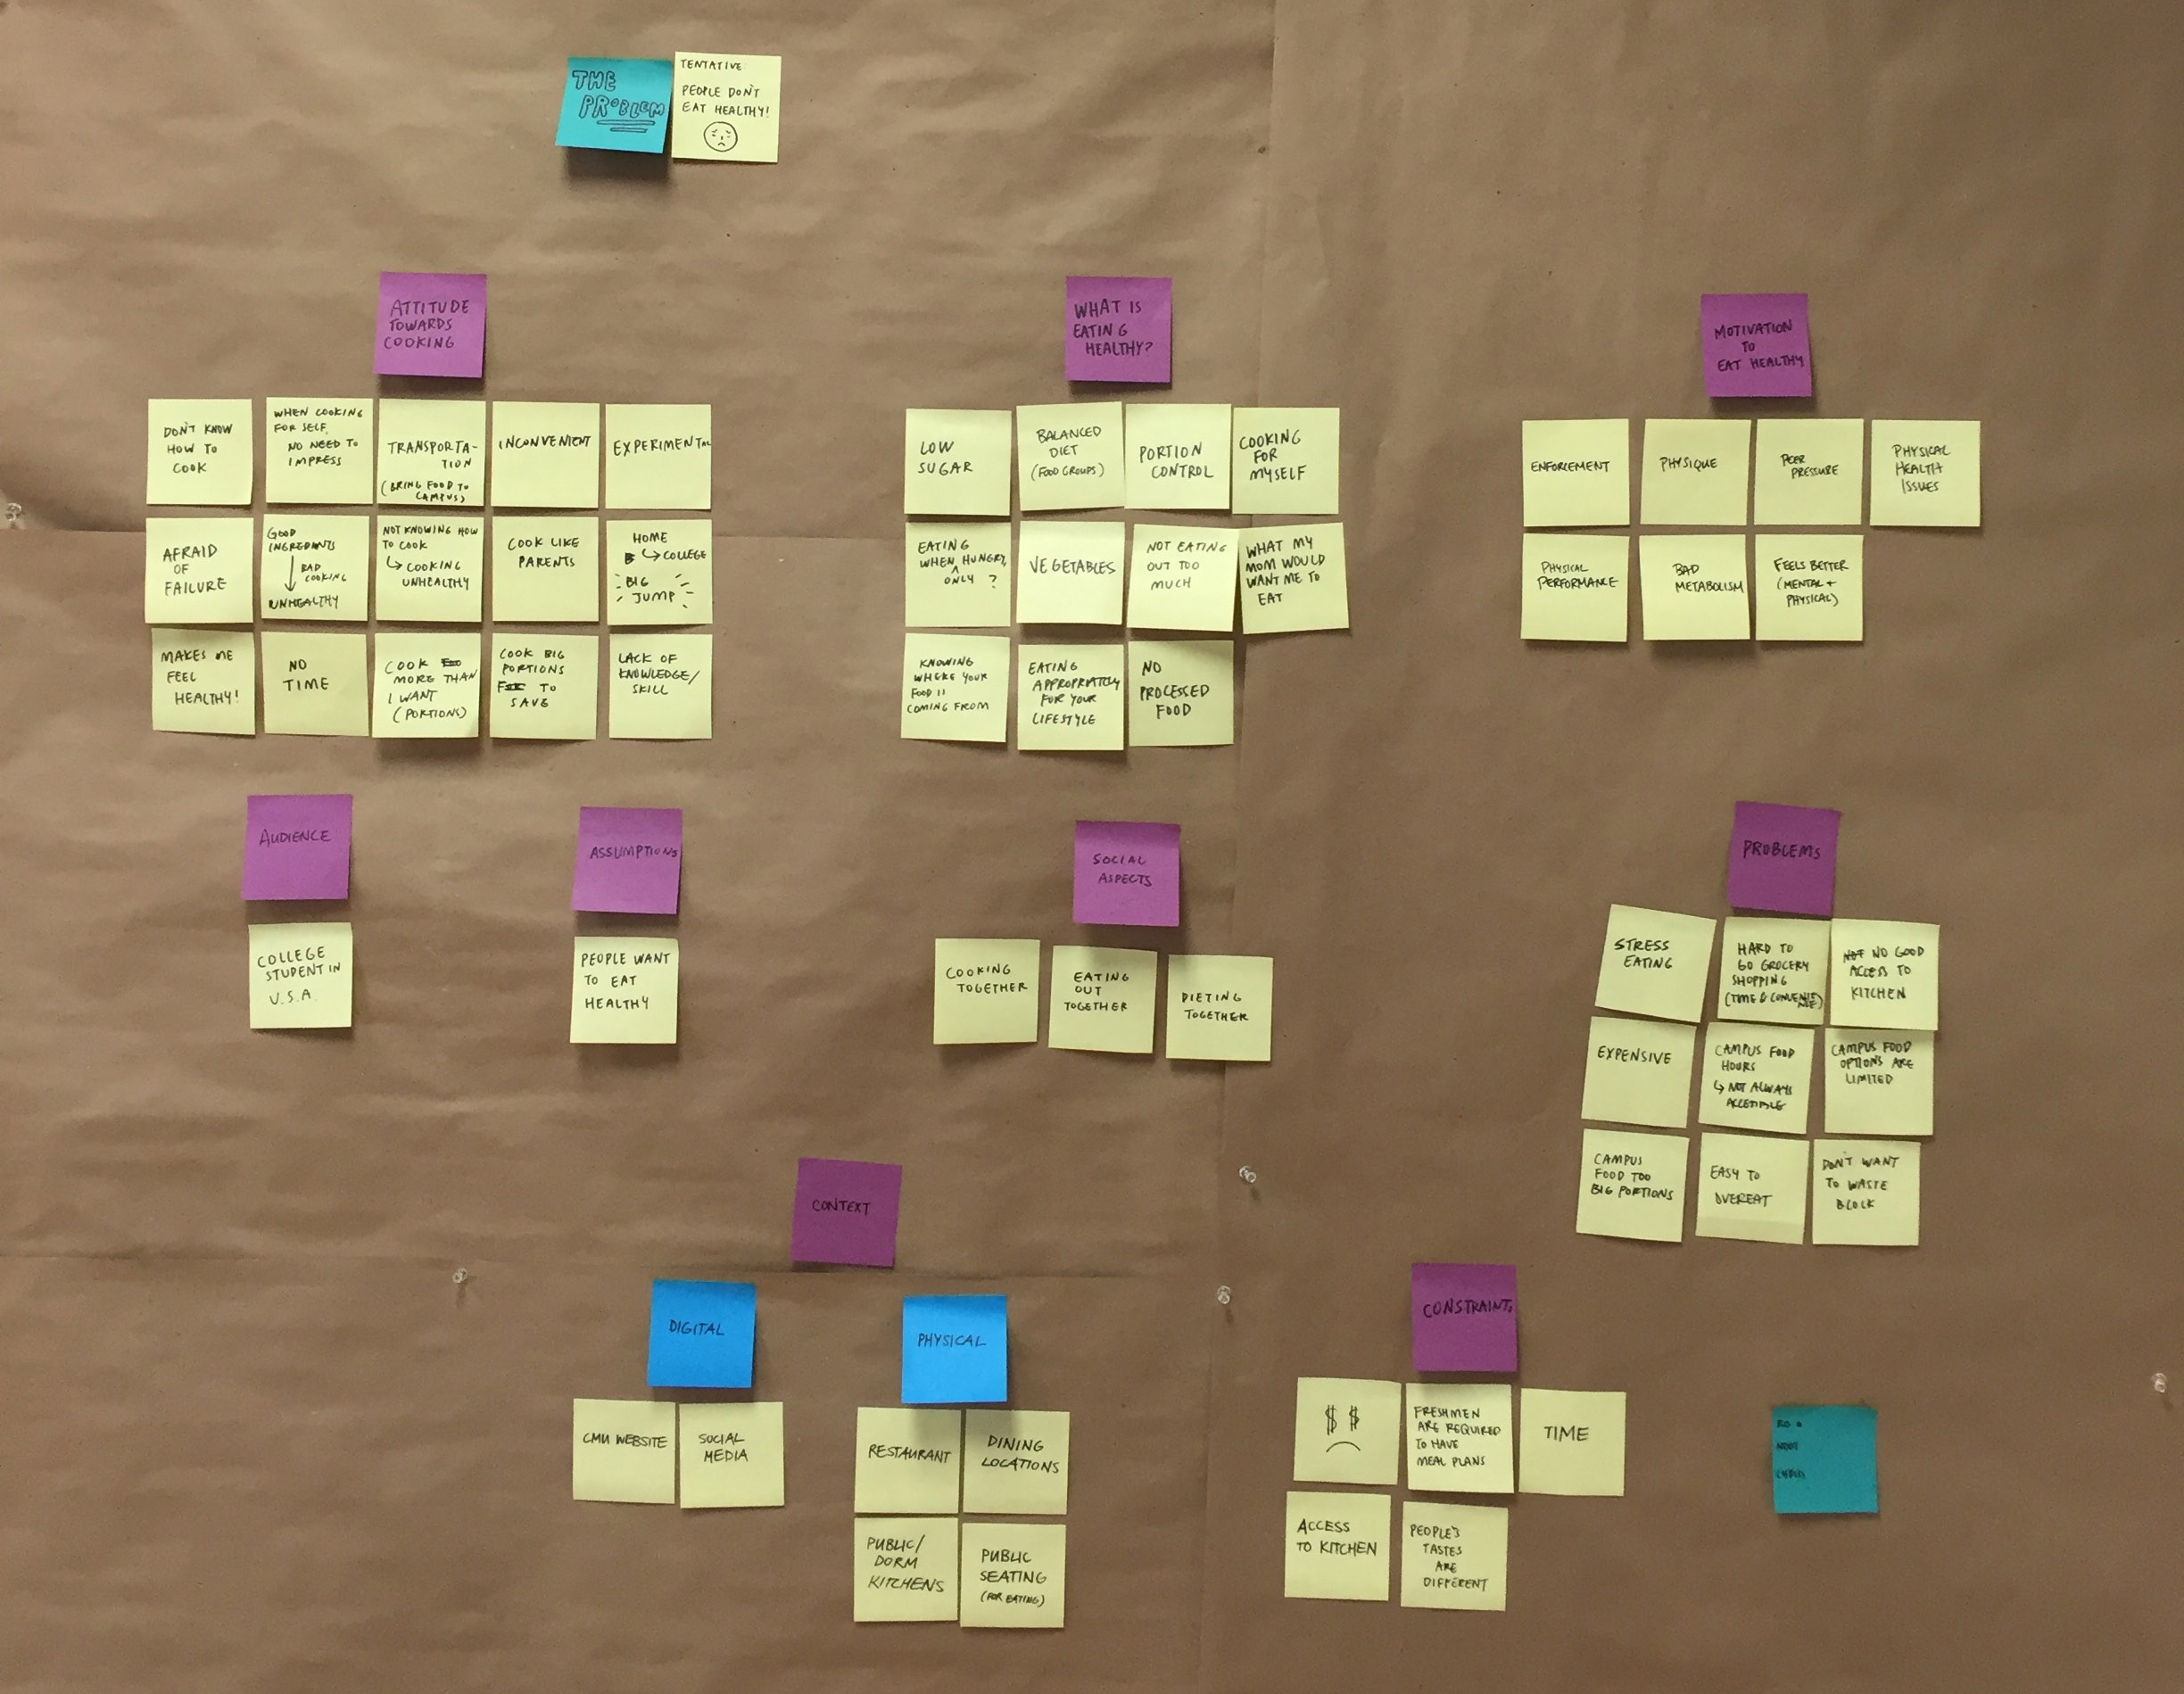 THE
PROBLEM
TENTATIVE:
PEOPLE DON'T
EAT HEALTHY!
ATTITUDE
TOWARDS
COOKING
DON'T KNOW
HOW TO
COOK
WHEN COOKING
FOR SELF,
NO NEED TO
IMPRESS
TRANSPORTA-
TION
(BRING FOOD TO
CAMPUS)
INCONVENIENT
EXPERIMENTAL
AFRAID
OF
FAILURE
GOOD
INGREDIENTS
BAD
COOKING
UNHEALTHY
NOT KNOWING HOW
TO COOK
↳ COOKING
UNHEALTHY
COOK LIKE
PARENTS
HOME
↳ COLLEGE
BIG
JUMP
MAKES ME
FEEL
HEALTHY!
NO
TIME
COOK
MORE THAN
I WANT
(PORTIONS)
COOK BIG
PORTIONS
TO
SAVE
LACK OF
KNOWLEDGE/
SKILL
WHAT IS
EATING
HEALTHY?
LOW
SUGAR
BALANCED
DIET
(FOOD GROUPS)
PORTION
CONTROL
COOKING
FOR
MYSELF
EATING
WHEN HUNGRY,
ONLY ?
VEGETABLES
NOT EATING
OUT TOO
MUCH
WHAT MY
MOM WOULD
WANT ME TO
EAT
KNOWING
WHERE YOUR
FOOD IS
COMING FROM
EATING
APPROPRIATELY
FOR YOUR
LIFESTYLE
NO
PROCESSED
FOOD
MOTIVATION
TO
EAT HEALTHY
ENFORCEMENT
PHYSIQUE
PEER
PRESSURE
PHYSICAL
HEALTH
ISSUES
PHYSICAL
PERFORMANCE
BAD
METABOLISM
FEELS BETTER
(MENTAL +
PHYSICAL)
AUDIENCE
COLLEGE
STUDENT IN
U.S.A.
ASSUMPTIONS
PEOPLE WANT
TO EAT
HEALTHY
SOCIAL
ASPECTS
COOKING
TOGETHER
EATING
OUT
TOGETHER
DIETING
TOGETHER
PROBLEMS
STRESS
EATING
HARD TO
GO GROCERY
SHOPPING
(TIME & CONVENIENCE)
NOT NO GOOD
ACCESS TO
KITCHEN
EXPENSIVE
CAMPUS FOOD
HOURS
↳ NOT ALWAYS
ACCESSIBLE
CAMPUS FOOD
OPTIONS ARE
LIMITED
CAMPUS
FOOD TOO
BIG PORTIONS
EASY TO
OVEREAT
DON'T WANT
TO WASTE
BLOCK
CONTEXT
DIGITAL
CMU WEBSITE
SOCIAL
MEDIA
PHYSICAL
RESTAURANT
DINING
LOCATIONS
PUBLIC/
DORM
KITCHENS
PUBLIC
SEATING
(FOR EATING)
CONSTRAINTS
$$
FRESHMEN
ARE REQUIRED
TO HAVE
MEAL PLANS
TIME
ACCESS
TO KITCHEN
PEOPLE'S
TASTES
ARE
DIFFERENT